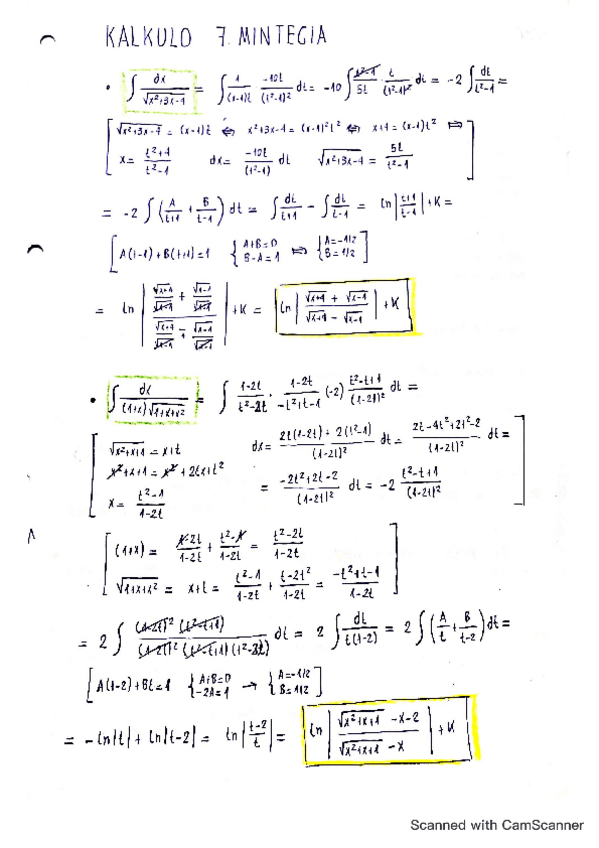 KALKULO 7. MINTEGIA
• ∫ dx/√(x²+3x-4) = ∫ 1/((x-1)t) · -10t/(t²-1)² dt = -10 ∫ (t²-1)/5t · t/(t²-1)² dt = -2 ∫ dt/(t²-1) =
[ √(x²+3x-4) = (x-1)t ⇔ x²+3x-4 = (x-1)²t² ⇔ x+4 = (x-1)t² ⇔
x = (t²+4)/(t²-1) dx = -10t/(t²-1) dt √(x²+3x-4) = 5t/(t²-1) ]
= -2 ∫ (A/(t+1) + B/(t-1)) dt = ∫ dt/(t+1) - ∫ dt/(t-1) = ln|(t+1)/(t-1)| + K =
[ A(t-1) + B(t+1) = 1 { A+B=0 B-A=1 ⇔ { A=-1/2 B=1/2 ]
= ln | (√(x+4)/√(x-1) + √(x-1)/√(x-1)) / (√(x+4)/√(x-1) - √(x-1)/√(x-1)) | + K = ln | (√(x+4) + √(x-1)) / (√(x+4) - √(x-1)) | + K
• ∫ dx/((1+x)√(1+x+x²)) = ∫ (1-2t)/(t²-2t) · (1-2t)/(-t²+t-1) (-2) (t²-t+1)/(1-2t)² dt =
[ √(x²+x+1) = x+t dx = (2t(1-2t) + 2(t²-1))/(1-2t)² dt = (2t-4t²+2t²-2)/(1-2t)² dt =
x²+x+1 = x² + 2tx+t² = (-2t²+2t-2)/(1-2t)² dt = -2 (t²-t+1)/(1-2t)²
x = (t²-1)/(1-2t) ]
[ (1+x) = (1-2t)/(1-2t) + (t²-1)/(1-2t) = (t²-2t)/(1-2t)
√(1+x+x²) = x+t = (t²-1)/(1-2t) + (t-2t²)/(1-2t) = (-t²+t-1)/(1-2t) ]
= 2 ∫ (1-2t)² (t²-t+1) / ((1-2t)² (t²-t+1)(t²-2t)) dt = 2 ∫ dt/(t(t-2)) = 2 ∫ (A/t + B/(t-2)) dt =
[ A(t-2) + Bt = 1 { A+B=0 -2A=1 → { A=-1/2 B=1/2 ]
= -ln|t| + ln|t-2| = ln|(t-2)/t| = ln | (√(x²+x+1) - x - 2) / (√(x²+x+1) - x) | + K
Scanned with CamScanner